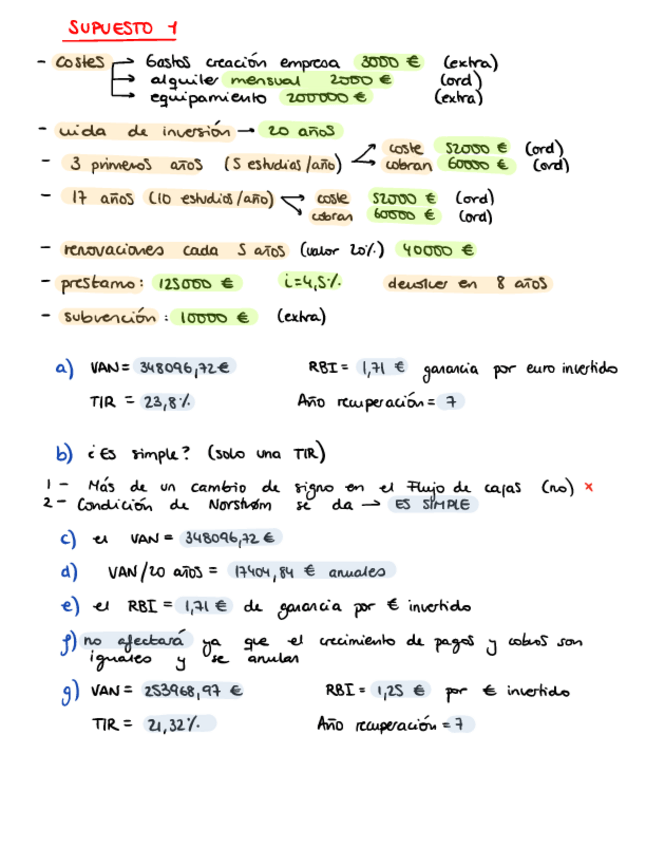 SUPUESTO 1
- costes → Gastos creación empresa 3000 € (extra)
→ alquiler mensual 2000 € (ord)
→ equipamiento 200000 € (extra)
- vida de inversión → 20 años
- 3 primeros años (5 estudios/año) coste 52000 € (ord)
cobran 60000 € (ord)
- 17 años (10 estudios/año) coste 52000 € (ord)
cobran 60000 € (ord)
- renovaciones cada 5 años (valor 20%) 40000 €
- prestamo: 125000 € i=4,5% devolver en 8 años
- subvención: 10000 € (extra)
a) VAN = 348096,72 € RBI = 1,71 € garancia por euro invertido
TIR = 23,8% Año recuperación = 7
b) ¿Es simple? (solo una TIR)
1 - Más de un cambio de signo en el Flujo de cajas (no) ×
2 - Condición de Norstrøm se da → ES SIMPLE
c) el VAN = 348096,72 €
d) VAN/20 años = 17404,84 € anuales
e) el RBI = 1,71 € de garancia por € invertido
f) no afectará ya que el crecimiento de pagos y cobros son
iguales y se anulan
g) VAN = 253968,97 € RBI = 1,25 € por € invertido
TIR = 21,32% Año recuperación = 7